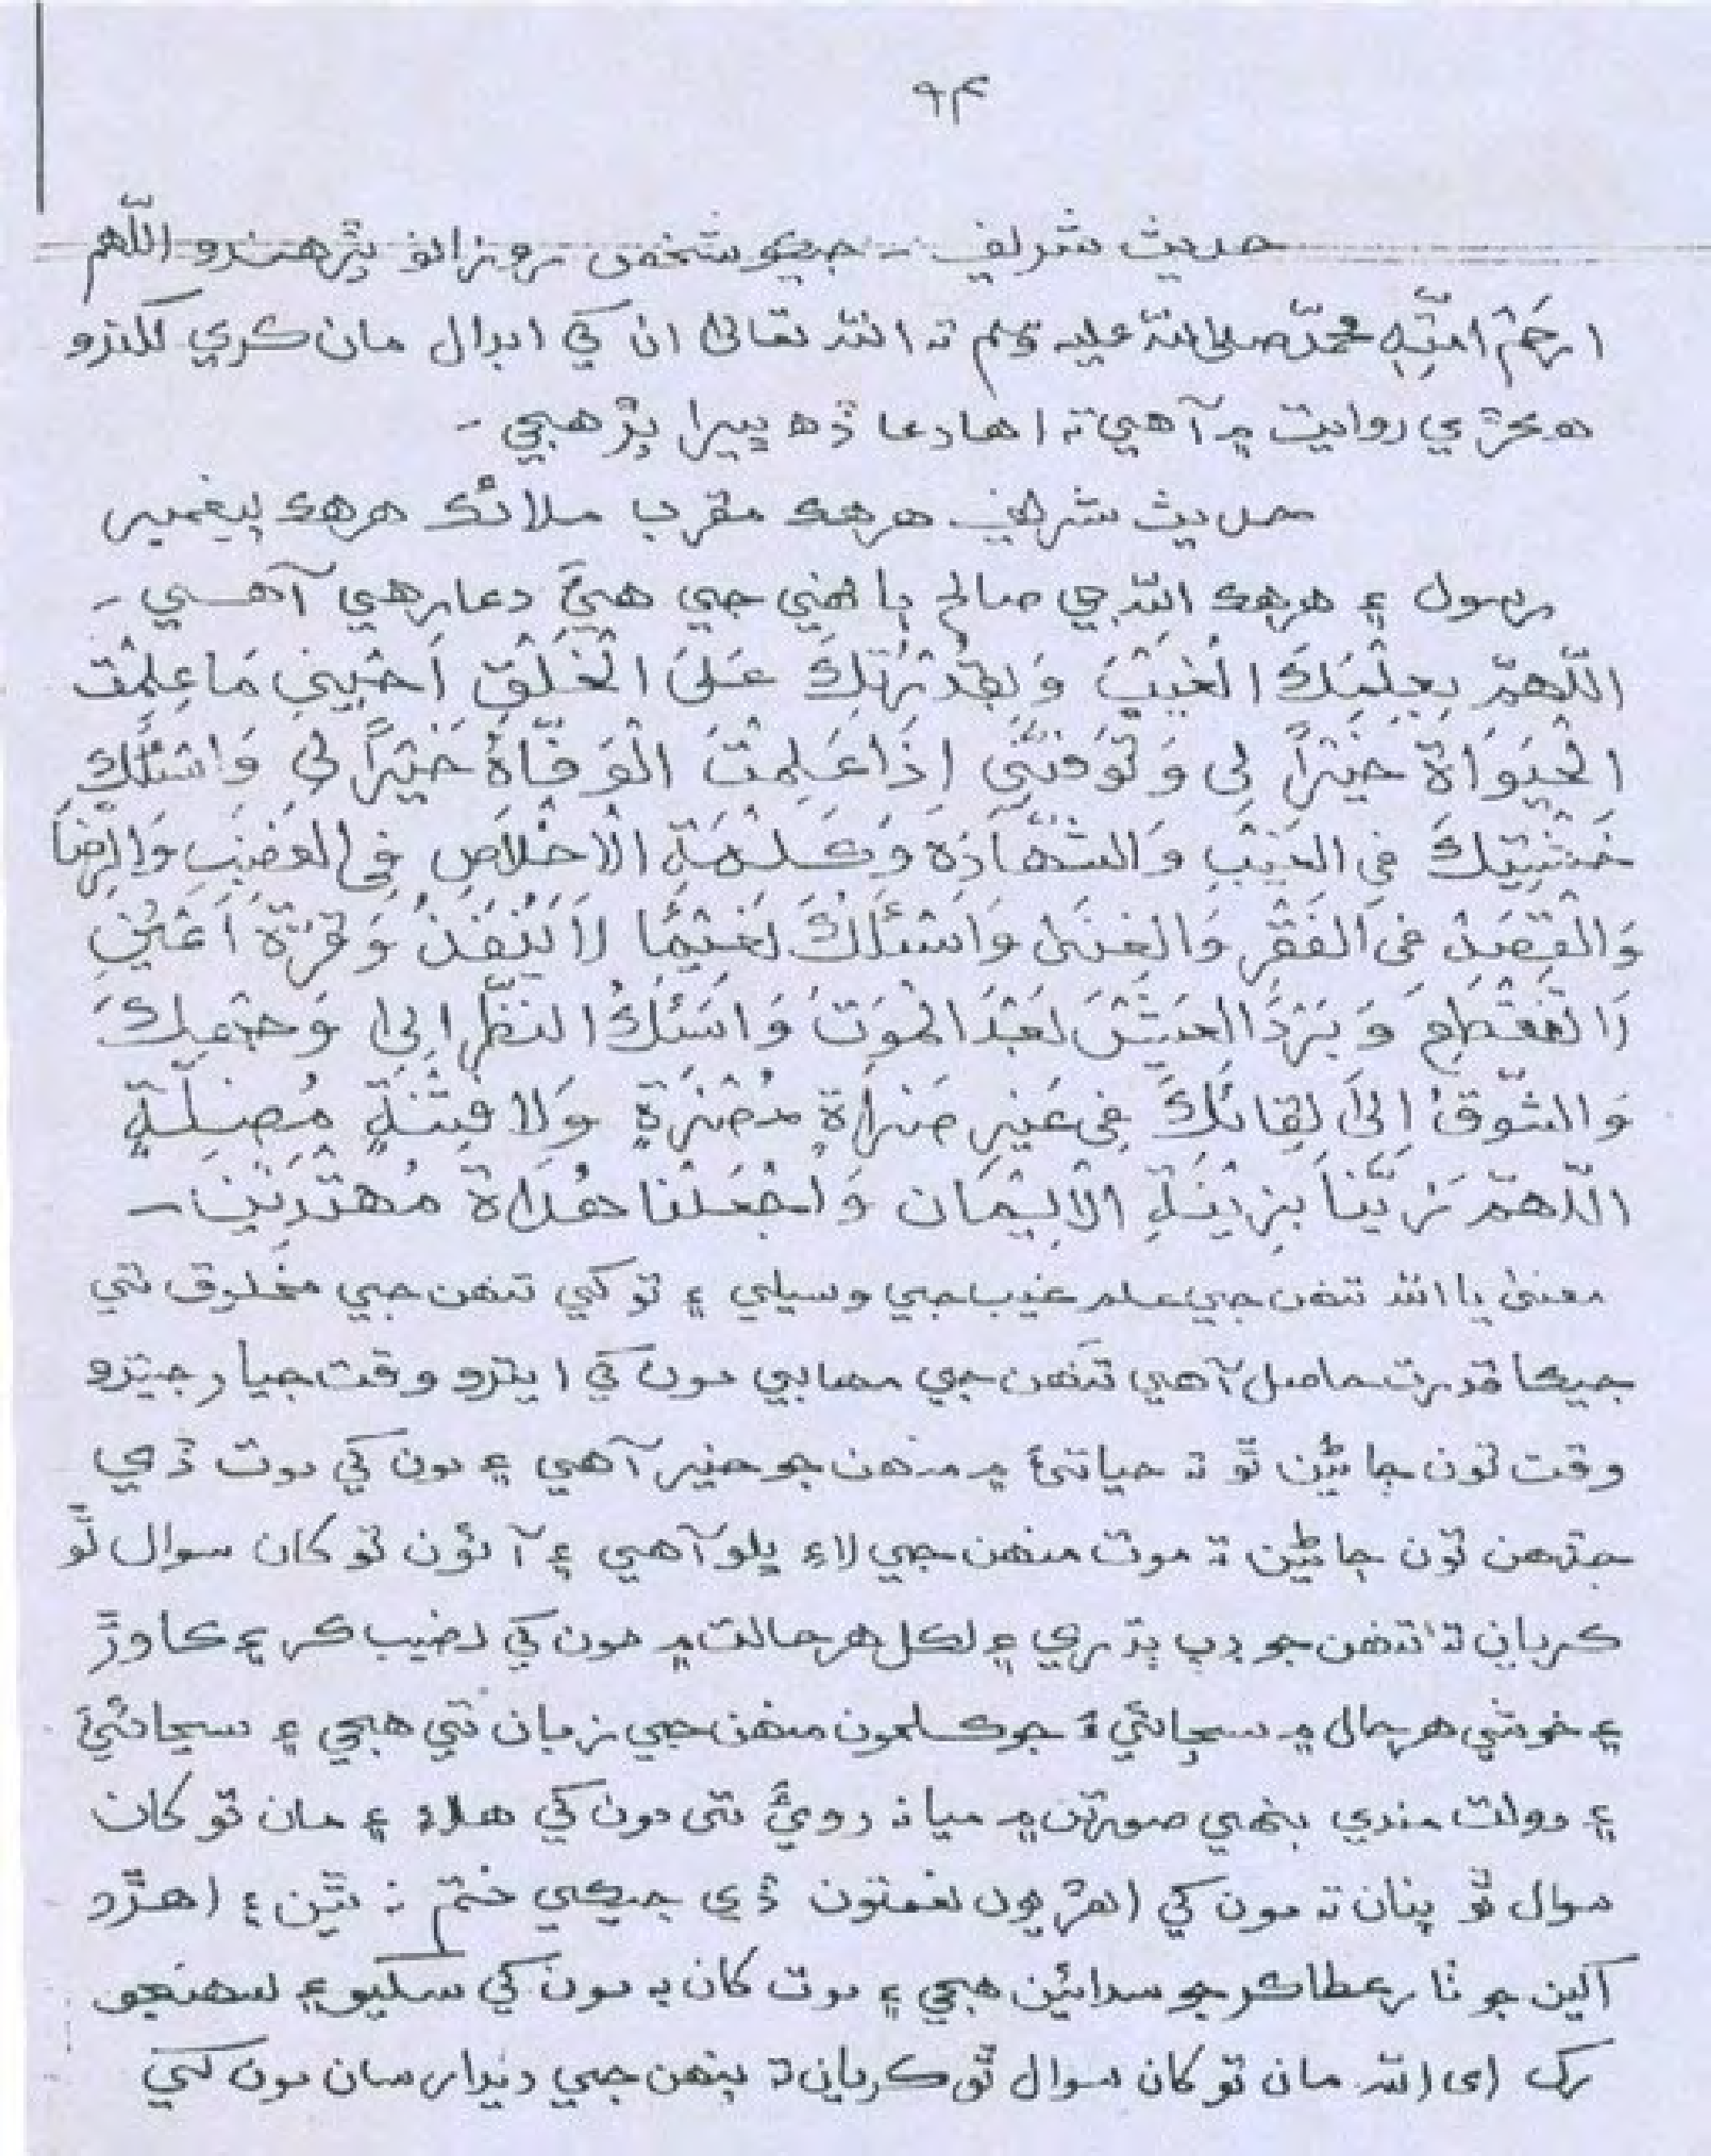 ٩٣
حديث شريف - جيڪو شخص روزانو پڙهندو اللّٰهم
ارحَمْ امّتِهِ محمّد صلى الله عليہ وسلم تہ الله تعالىٰ ان کي ابدال مان ڪري لکندو
هڪڙي روايت ۾ آهي تہ اها دعا ڏه ڀيرا پڙهجي -
حديث شريف هر هڪ مقرب ملائڪ هر هڪ پيغمبر
رسول ۽ هر هڪ الله جي صالح ٻانهي جي هيَّ دعا رهي آهي -
اللّٰهمّ بِعِلْمِكَ الْغَيْبَ وَبِقُدْرَتِكَ عَلَى الْخَلْقِ اَحْيِنِي مَا عَلِمْتَ
الْحَيَوَاةَ خَيْراً لِي وَتَوَفَّنِي اِذَا عَلِمْتَ الْوَفَاةَ خَيْراً لِي وَاسْئَلُكَ
خَشْيَتِيكَ فِي الغَيْبِ وَالشَّهَادَه وَكَلِمَةِ الْاِخْلَاصِ فِى الغَضَبِ وَالرِّضَا
وَالْقَصَدِ فِى الْفَقْرِ وَالغِنىٰ وَاسْئَلُكَ نَعْيِمًا لَا يَنْفَذُ وَقُرَّةَ اَعْيُنِ
لَا تَنْقَطِعِ وَبَرْدَ العَيْشَ بَعْدَ الْمَوْتَ وَاَسْئَلُكُ النَظْرِ اِلىٰ وَجْهِكَ
وَالشَّوْقُ اِلىٰ لِقَائِكَ فِى غَيْرِ ضَرَاةٍ مُضْرَةٍ وَلَا فِتْنَةٍ مُضِلَّةٍ
اللّٰهمّ زَيِّنَا بِزِيْنَةِ الْاِيْمَان وَاجْعَلْنَا هُدَاةً مُهْتَدِيْنَ -
معنىٰ يا الله تنهن جي علم غيب جي وسيلي ۽ تو کي تنهن جي مخلوق تي
جيڪا قدرت حاصل آهي تنهن جي مون کي ايترو وقت جيار جيترو
وقت تون ڄاڻين ٿو تہ حياتيءَ ۾ منهن جو خير آهي ۽ مون کي موت ڏي
جڏهن تون ڄاڻين تہ موت منهن جي لاءِ ڀلو آهي ۽ آئون تو کان سوال ٿو
ڪريان تہ تنهن جو ڊپ پڌري ۽ لڪل هر حالت ۾ مون کي نصيب ڪر ۽ ڪاوڙ
۽ خوشي هر حال ۾ سچائيءَ جو ڪلمون منهن جي زبان تي هجي ۽ سچائيءَ
۽ دولت مندي ٻنهي صورتن ۾ ميانہ رويءَ تي مون کي هلاءِ ۽ مان تو کان
سوال ٿو پنان تہ مون کي اهڙيون نعمتون ڏي جيڪي ختم نہ ٿين ۽ اهڙو
اکين جو ٺار عطا ڪر جو سدائين هجي ۽ موت کان بہ مون کي سکيو ۽ سهنجو
رک اي الله مان تو کان سوال ٿو ڪريان تہ پنهن جي ديدار سان مون کي